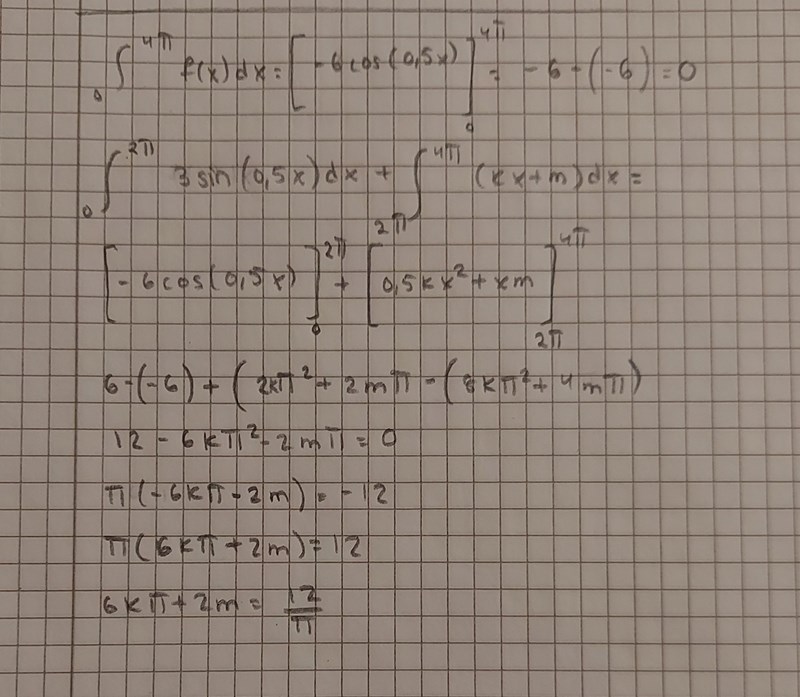 ∫₀^4π f(x)dx = [-6cos(0,5x)]₀^4π = -6-(-6) = 0
∫₀^2π 3sin(0,5x)dx + ∫_2π^4π (kx+m)dx =
[-6cos(0,5x)]₀^2π + [0,5kx²+xm]_2π^4π
6-(-6)+(2kπ²+2mπ-(8kπ²+4mπ)
12-6kπ²-2mπ=0
π(-6kπ-2m)=-12
π(6kπ+2m)=12
6kπ+2m=12/π